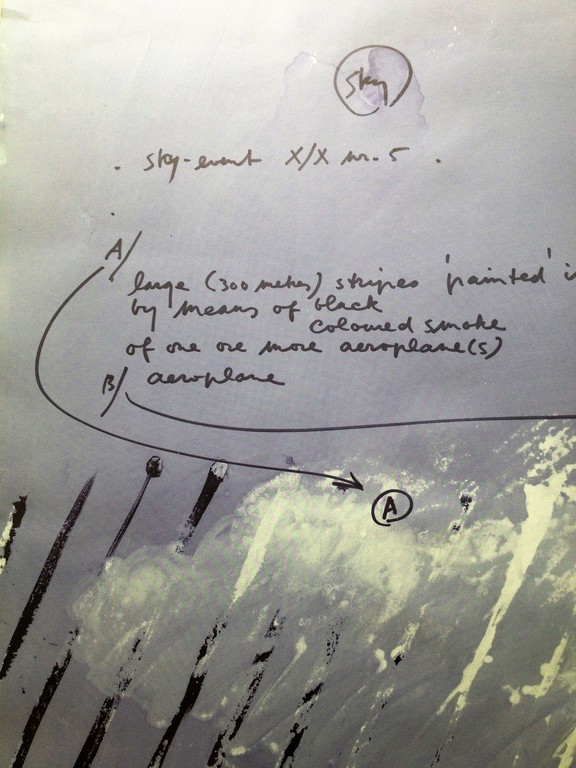 sky
. sky-event X/X nr. 5 .
A/
large (300 metres) stripes 'painted' i
by means of black
coloured smoke
of one ore more aeroplane(s)
B/ aeroplane
A